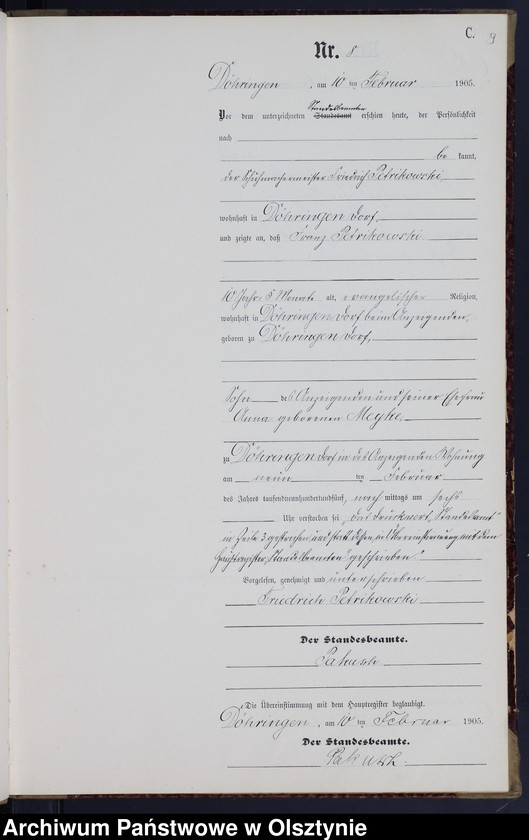 C.
9
Nr. 8
Döhringen, am 10ten Februar 1905.
Standesbeamten
Vor dem unterzeichneten Standesamt erschien heute, der Persönlichkeit
nach
be kannt,
der Schuhmachermeister Friedrich Petrikowski,
wohnhaft in Döhringen Dorf,
und zeigte an, daß Franz Petrikowski
10 Jahr 5 Monate alt, evangelischer Religion,
wohnhaft in Döhringen Dorf beim Anzeigenden,
geboren zu Döhringen Dorf,
Sohn des Anzeigenden und seiner Ehefrau
Anna geborenen Meyke,
zu Döhringen Dorf in des Anzeigenden Wohnung
am neun ten Februar
des Jahres tausendneunhundertundfünf, nach mittags um sechs
Uhr verstorben sei „Das Druckwort „Standesamt"
in Zeile 3 gestrichen und statt dessen in Übereinstimmung mit dem
Hauptregister „Standesbeamten" geschrieben."
Vorgelesen, genehmigt und unterschrieben
Friedrich Petrikowski
Der Standesbeamte.
Der
Die Übereinstimmung mit dem Hauptregister beglaubigt.
Döhringen, am 10ten Februar 1905.
Der Standesbeamte.
Archiwum Państwowe w Olsztynie